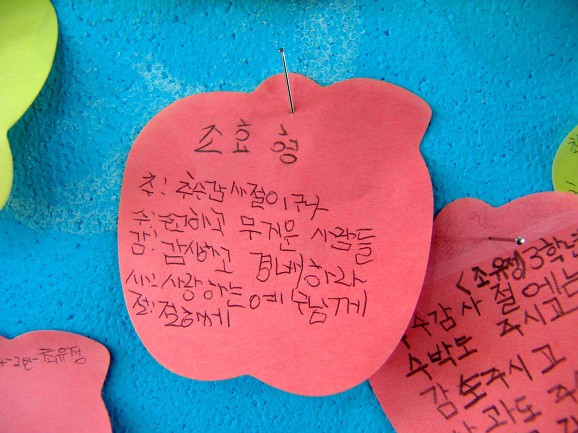 조효형
추: 추수감사절이구나
수: 수고하고 무거운 사람들
감: 감사하고 경배하라
사: 사랑하는 예수님께
절: 절하세
<조유정> 3학년
수감사 절에는
수박도 주시고
감도주시고
과도 주
2반-조유정